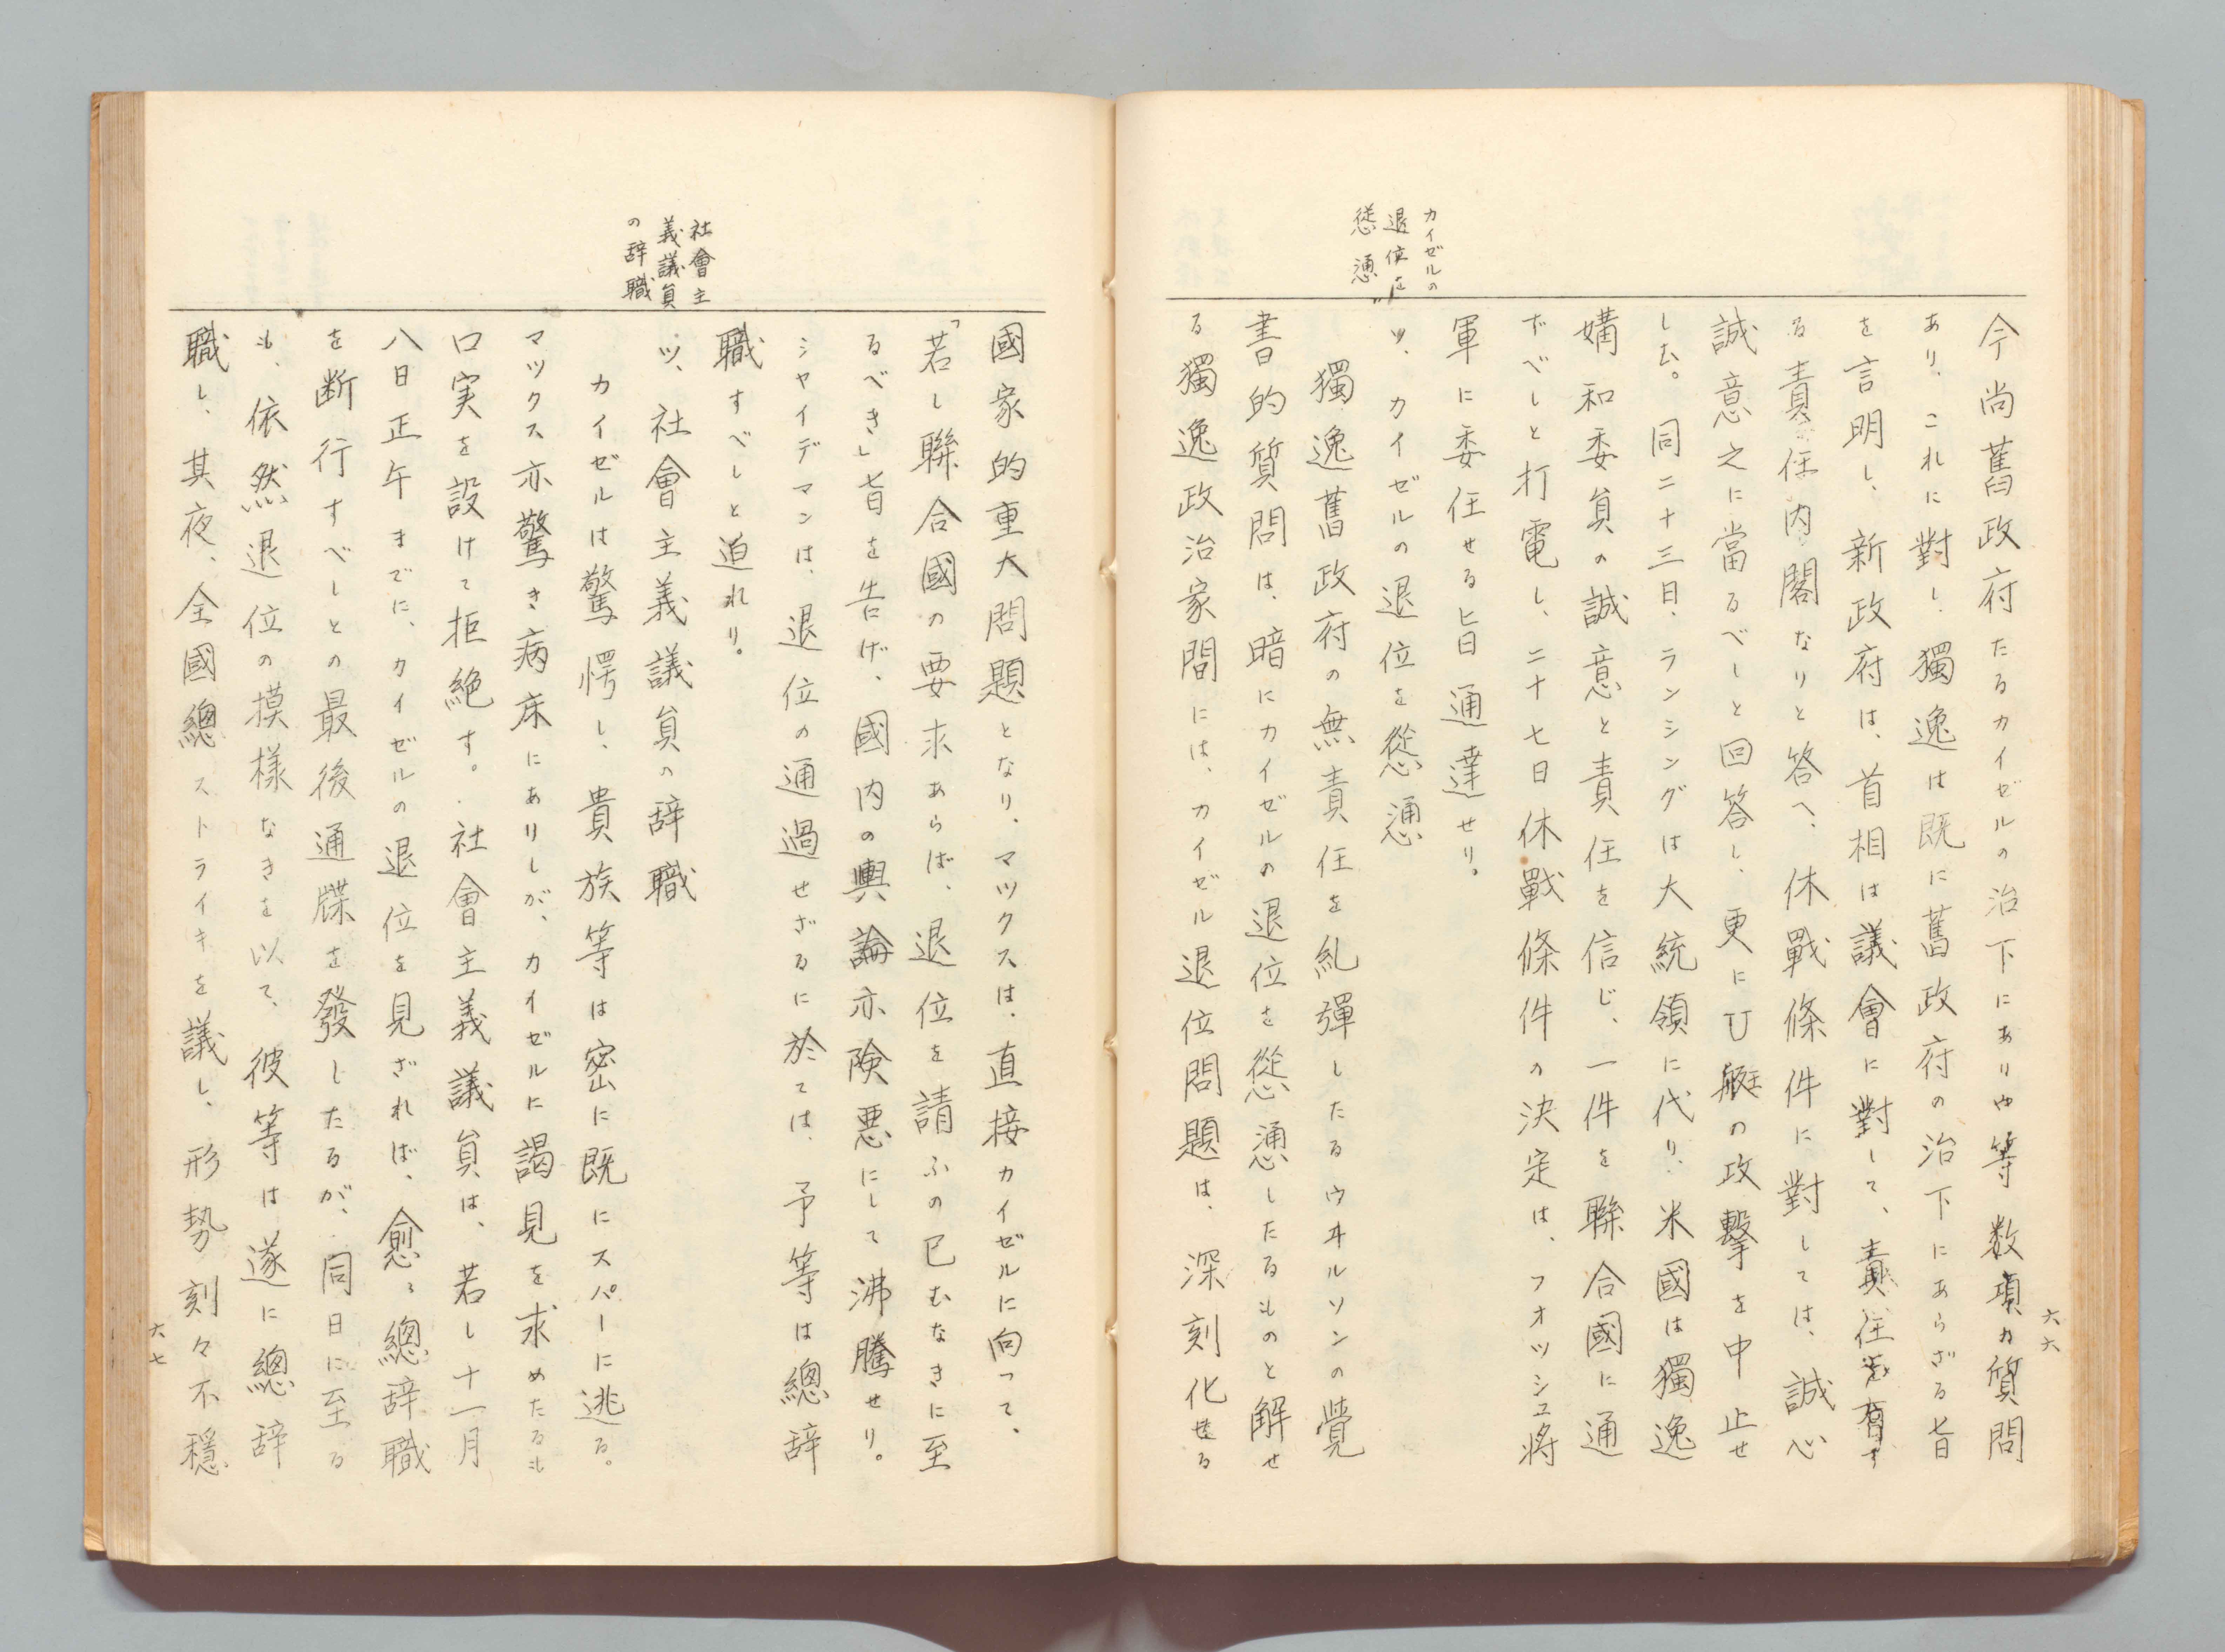 カイゼルの
退位を
慫慂
今尚舊政府たるカイゼルの治下にありや等数項の質問
あり、これに對し、獨逸は既に舊政府の治下にあらざる旨
を言明し、新政府は、首相は議會に對して、責任を有す
る責任内閣なりと答へ、休戰條件に對しては、誠心
誠意之に當るべしと回答し、更にU艇の攻擊を中止せ
しむ。同二十三日、ランシングは大統領に代り、米國は獨逸
媾和委員の誠意と責任を信じ、一件を聯合國に通
ずべしと打電し、二十七日休戰條件の決定は、フオツシユ将
軍に委任せる旨通達せり。
ツ、カイゼルの退位を慫慂
獨逸舊政府の無責任を糺彈したるウヰルソンの覺
書的質問は、暗にカイゼルの退位を慫慂したるものと解せ
る獨逸政治家間には、カイゼル退位問題は、深刻化せる
六六
社會主
義議員
の辞職
國家的重大問題となり、マツクスは、直接カイゼルに向つて、
「若し聯合國の要求あらば、退位を請ふの已むなきに至
るべき」旨を告げ、國内の輿論亦険悪にして沸騰せり。
シヤイデマンは、退位の通過せざるに於ては、予等は總辞
職すべしと迫れり。
ツ、社會主義議員の辞職
カイゼルは驚愕し、貴族等は密に既にスパーに逃る。
マツクス亦驚き病床にありしが、カイゼルに謁見を求めたるも
口実を設けて拒絶す。社會主義議員は、若し十一月
八日正午までに、カイゼルの退位を見ざれば、愈々總辞職
を断行すべしとの最後通牒を發したるが、同日に至る
も、依然退位の摸様なきを以て、彼等は遂に總辞
職し、其夜、全國總ストライキを議し、形勢刻々不穏
六七